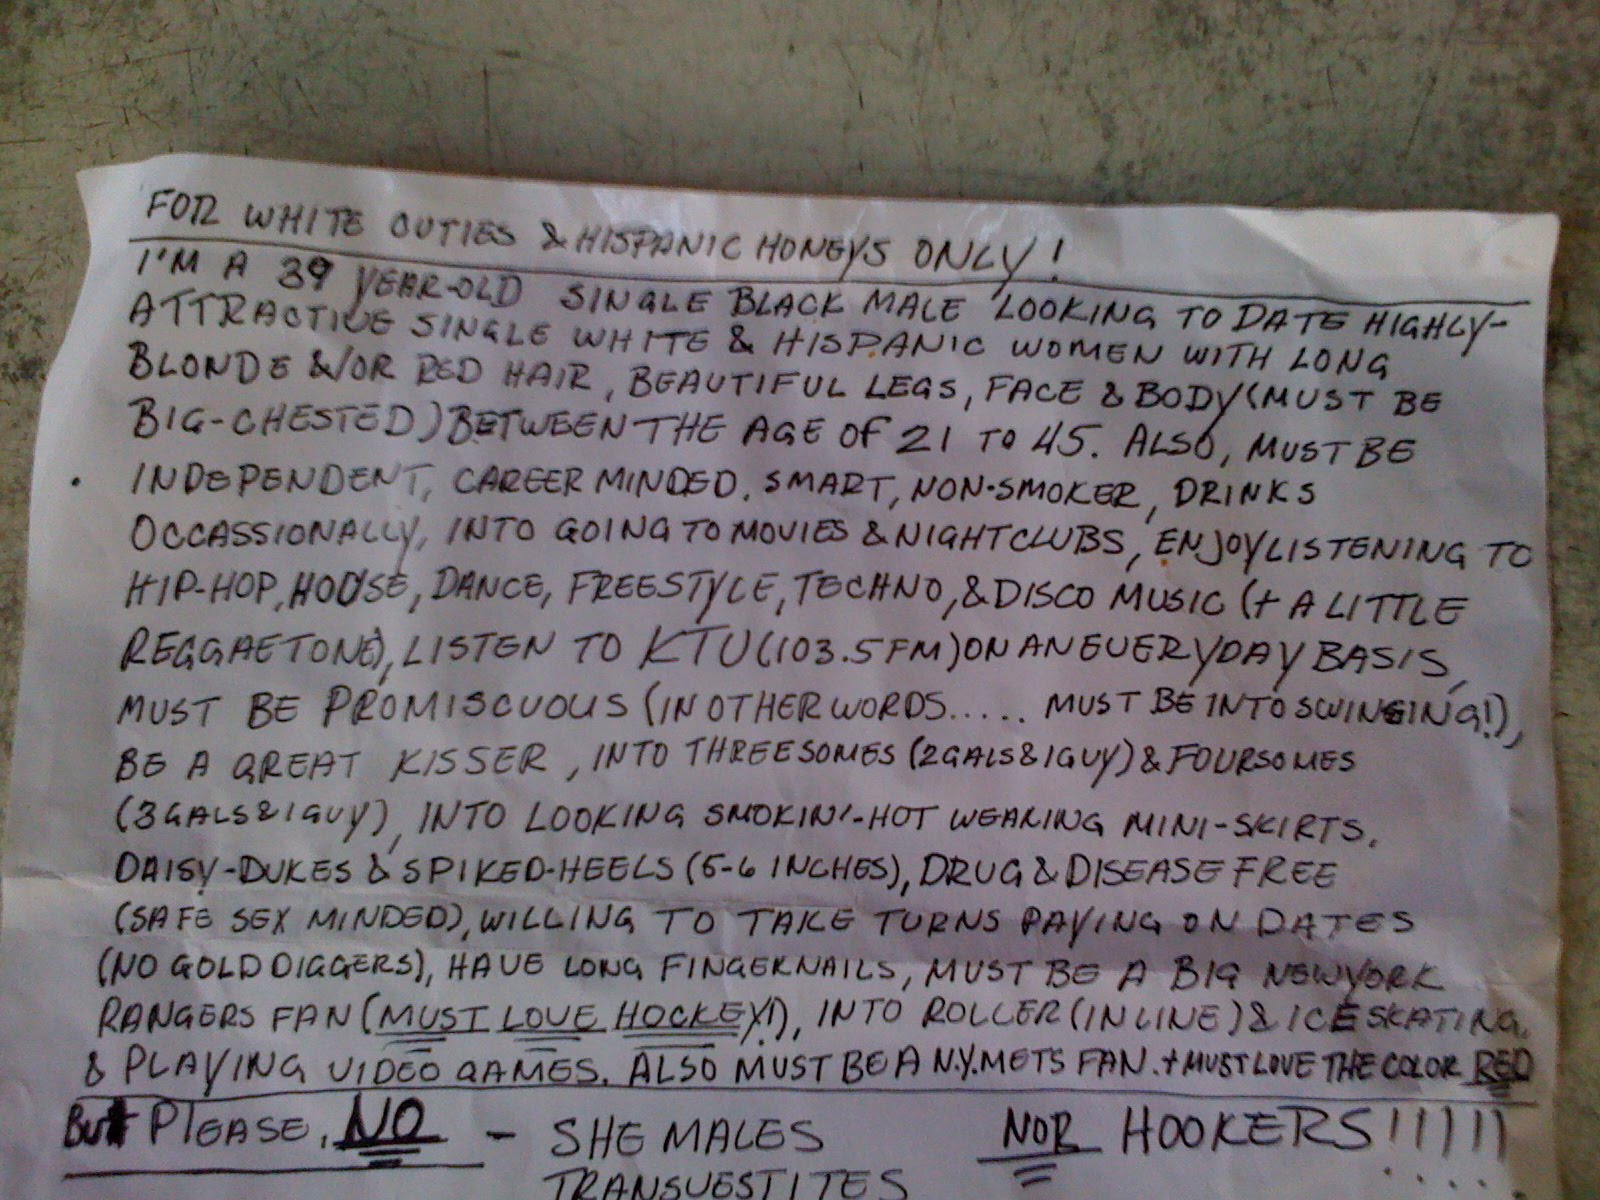 FOR WHITE CUTIES & HISPANIC HONEYS ONLY!
I'M A 39 YEAR-OLD SINGLE BLACK MALE LOOKING TO DATE HIGHLY-
ATTRACTIVE SINGLE WHITE & HISPANIC WOMEN WITH LONG
BLONDE &/OR RED HAIR, BEAUTIFUL LEGS, FACE & BODY (MUST BE
BIG-CHESTED) BETWEEN THE AGE OF 21 TO 45. ALSO, MUST BE
INDEPENDENT, CAREER MINDED. SMART, NON-SMOKER, DRINKS
OCCASSIONALLY, INTO GOING TO MOVIES & NIGHTCLUBS, ENJOY LISTENING TO
HIP-HOP, HOUSE, DANCE, FREESTYLE, TECHNO, & DISCO MUSIC (+ A LITTLE
REGGAETONE), LISTEN TO KTU (103.5 FM) ON AN EVERYDAY BASIS,
MUST BE PROMISCUOUS (IN OTHER WORDS..... MUST BE INTO SWINGING!),
BE A GREAT KISSER, INTO THREESOMES (2 GALS & 1 GUY) & FOURSOMES
(3 GALS & 1 GUY), INTO LOOKING SMOKIN'-HOT WEARING MINI-SKIRTS.
DAISY-DUKES & SPIKED-HEELS (5-6 INCHES), DRUG & DISEASE FREE
(SAFE SEX MINDED), WILLING TO TAKE TURNS PAYING ON DATES
(NO GOLD DIGGERS), HAVE LONG FINGERNAILS, MUST BE A BIG NEW YORK
RANGERS FAN (MUST LOVE HOCKEY!), INTO ROLLER (INLINE) & ICE SKATING
& PLAYING VIDEO GAMES. ALSO MUST BE A N.Y. METS FAN. + MUST LOVE THE COLOR RED
BUT PLEASE, NO - SHE MALES NOR HOOKERS!!!!!
TRANSVESTITES